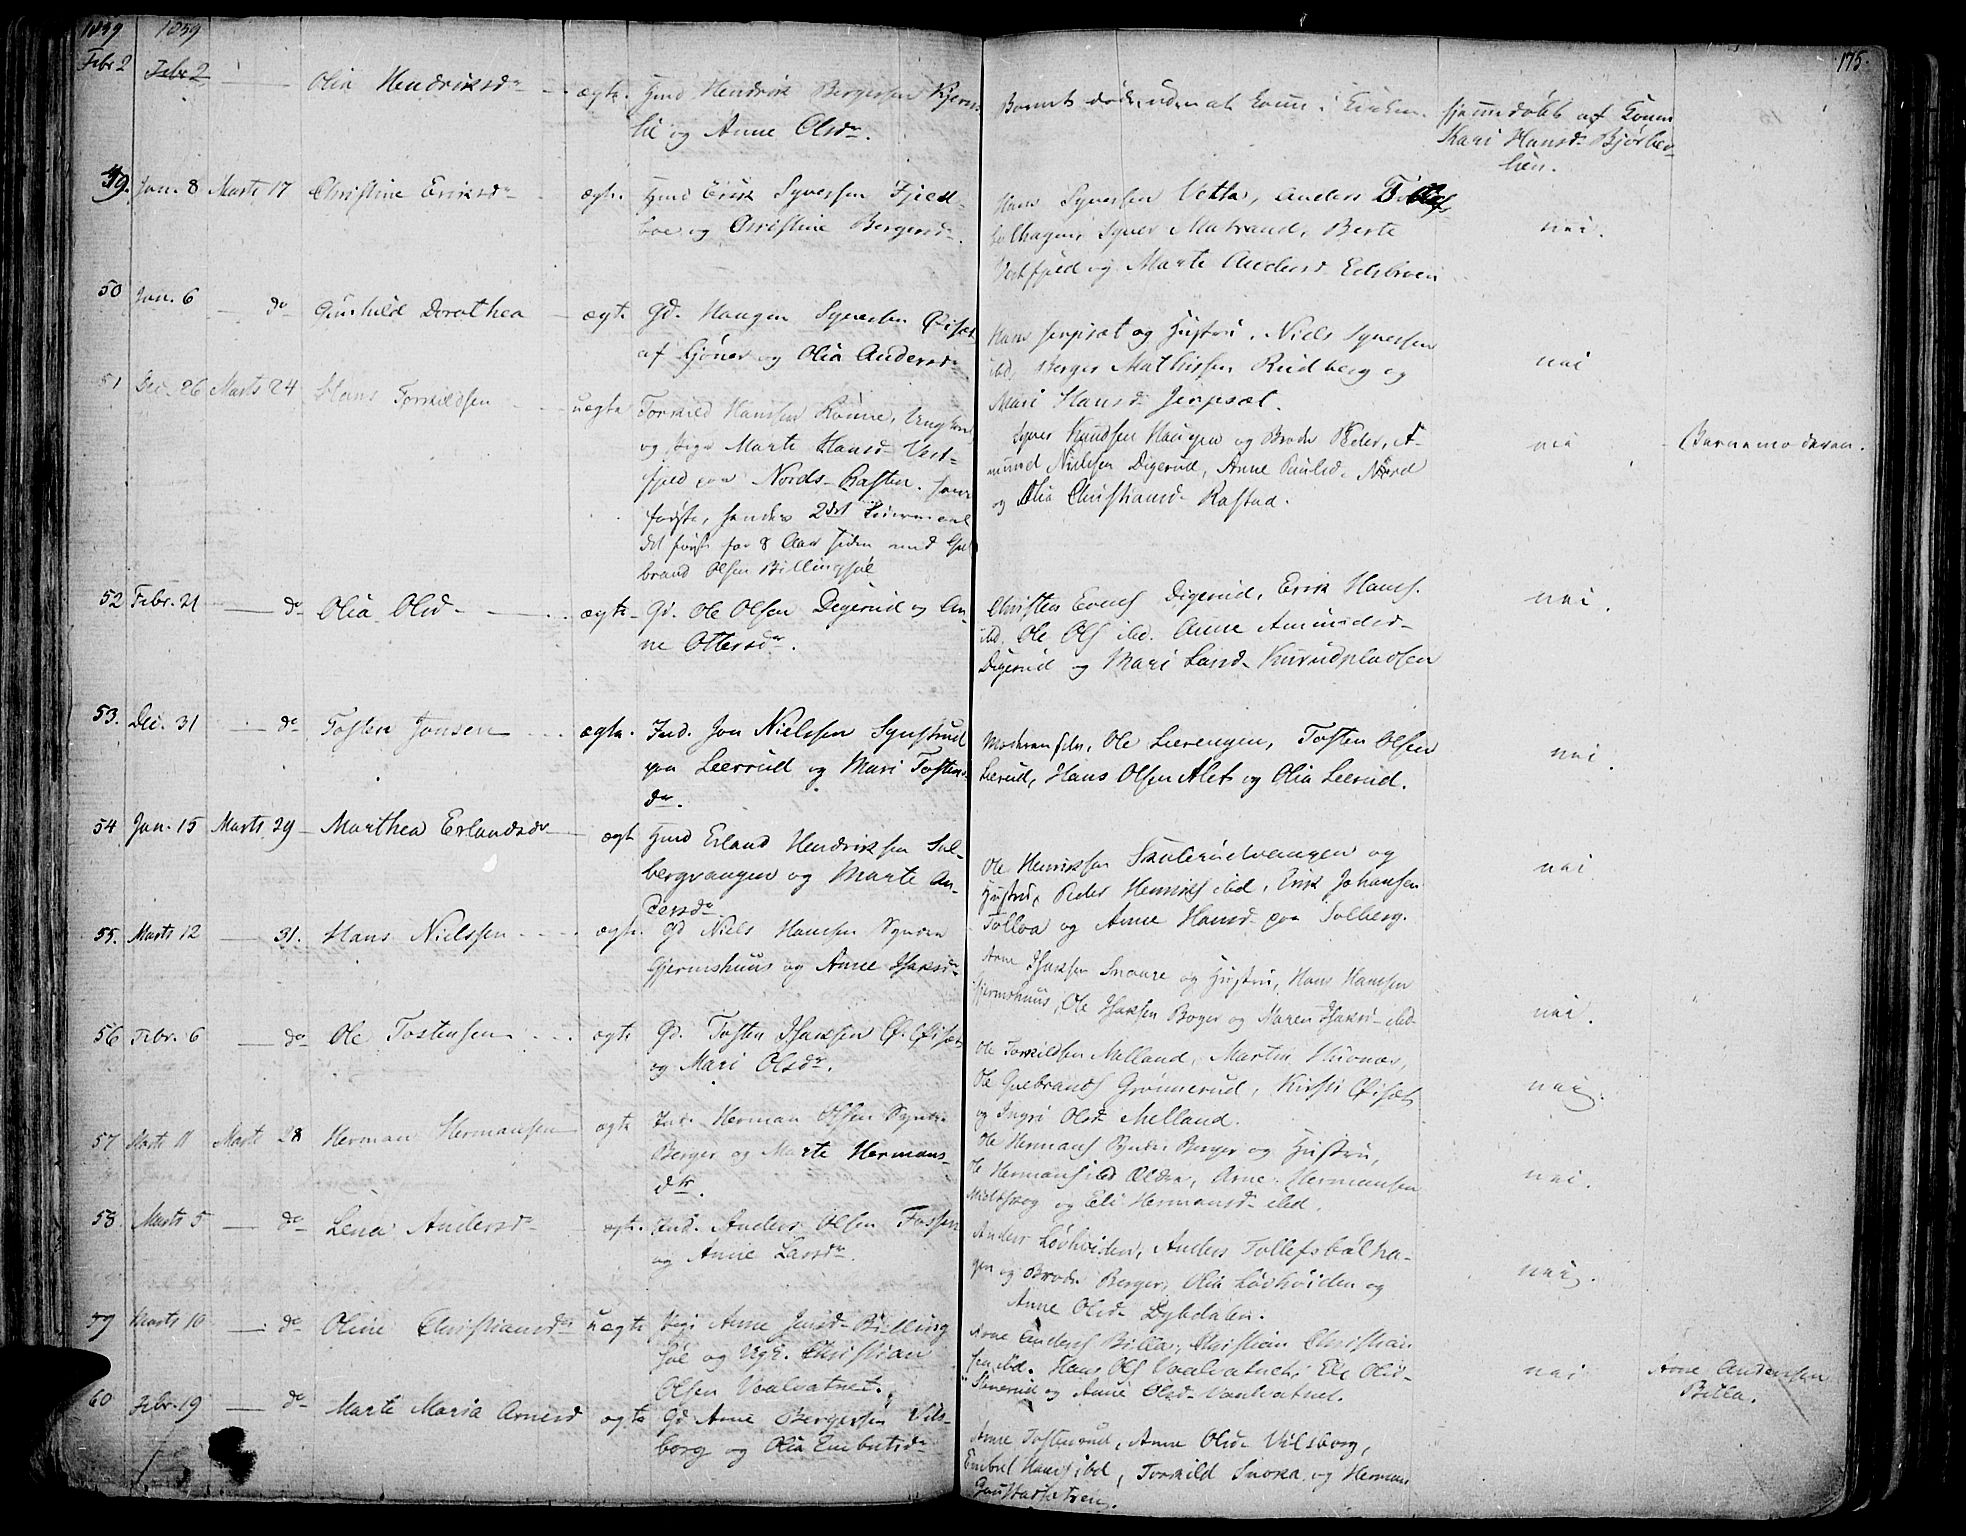 1839 1839 175.
Febr 2 Febr 2 — Olia Hendriksdr ægte. Hmd Hendrik Bergersen
lie og Anne Olsdr.
Barnet døde, uden at komme i Kirken. hjemmedøbt af Konen
Kari Hansd Bjørber-
lien.
49. Jan. 8 Marts 17 Christine Eriksdr ægte. Hmd Erik Syversen Fjeld-
boe og Christine Bergersdr.
Hans Syversen Vetta, Anders
bølhagen, Syver Matrand, Berte
Vestfjeld og Marte Andersd
nei.
50 Jan. 6 — do Gunhild Dorothea ægte Gd. Haagen Syversen Øisæt
af og Olia Andersdr
Hans Jerpsæt og Hustru, Niels Syversen
ibd. Berger Mathissen Rudberg og
Mari Hansd Jerpsæt.
nei
51 Dec. 26 Marts 24 Hans Torkildsen uægte Torkild Hanssen Ungkarl
og Pige Marte Hansd Vest-
fjeld paa Nords-Rasten. hans
første, hendes 2det Leiermaal
det første for 8 Aar siden med Gul-
brand Olsen Billingsøe
Syver Knudsen Haugen og Broder Peder, A-
mund Nielsen Digerud, Anne Paulsd. Nord
og Olia Christiansd. Rastad.
nei Barnemoderen.
52 Febr. 21 — do Olia Olsd ægte Gd. Ole Olsen Digerud og An-
ne Ottersdr.
Christen Evens Digerud, Erik Hans.
ibd. Ole Ols ibd. Anne Amundsd
Digerud og Mari Larsd Kurudpladsen
nei.
53. Dec. 31 — do Tosten Jonsen ægte. Ind. Jon Nielssen Synstrud
paa Leerrud og Mari Tostens-
dr.
Moderen selv, Ole Leerengen, Tosten Olsen
Leerud, Hans Olsen Alet og Olia Leerud.
nei.
54 Jan. 15 Marts 29 Marthea Erlandsdr ægte Hmd Erland Hendriksen Sol-
bergvangen og Marte An-
dersdr
Ole Henriksen Skulerudvangen og
Hustru, Peder Henriks ibd, Erik Johansen
Tollva og Anne Hansd paa Solberg.
nei
55. Marts 12 — 31. Hans Nielssen ægte. Gd Niels Hansen Syndre
Gjermshuus og Anne Isaksdr
Arne Isaksen Snoare og Hustru, Hans Hansen
Gjermshuus, Ole Isaksen Boger og Maren Isaksd ibd.
nei.
56 Febr. 6 — do Ole Tostensen ægte Gd. Tosten Isaksen Ø. Øisæt
og Mari Olsdr.
Ole Torkildsen Melland, Martin
Ole Gulbrands Grønnerud, Kirsti Øisæt
og Ingri Olsd Melland.
nei.
57 Marts 11 Marts 28 Herman Hermansen ægte Ind. Herman Olsen Syndre
Berger og Marte Hermans-
dtr.
Ole Hermans Syndre Berger og Hustru,
Ole Hermans ibd Ældre, Arne Hermansen
Midtskog og Eli Hermansd ibd.
nei.
58. Marts 5 — do Lena Andersd ægte. Ind. Anders Olsen Fossen
og Anne Larsdr.
Anders Løvhøiden, Anders Tollefsbølha-
gen og Broder Berger, Olia Løvhøiden og
Anne Olsd Dybdalen.
nei.
59 Marts 10 — do Oline Christiansdr uægte Pige Anne Jensd Billing
søe og Ugk. Christian
Olsen Vaalvatnet.
Arne Anders Billa, Christian Christian
sen ibd. Hans Ols Vaalvatnet, Eli Olsd
Stenerud og Anne Olsd Vaalvatnet.
nei Arne Andersen
Billa.
60 Febr. 19 — do Marte Maria Arnesd ægte Gd Arne Bergersen Vils-
borg og Olia Embretsdr
Arne Tostenrud, Anne Olsd Vilsborg,
Embret Hans ibd, Torkild Snoka og Herman
Gaustadsætren.